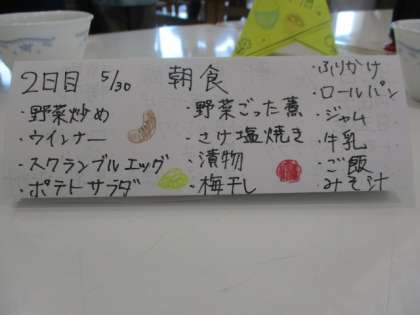 2日目 5/30 朝食
・野菜炒め
・ウインナー
・スクランブルエッグ
・ポテトサラダ
・野菜ごった煮
・さけ塩焼き
・漬物
・梅干し
・ふりかけ
・ロールパン
・ジャム
・牛乳
・ご飯
・みそ汁